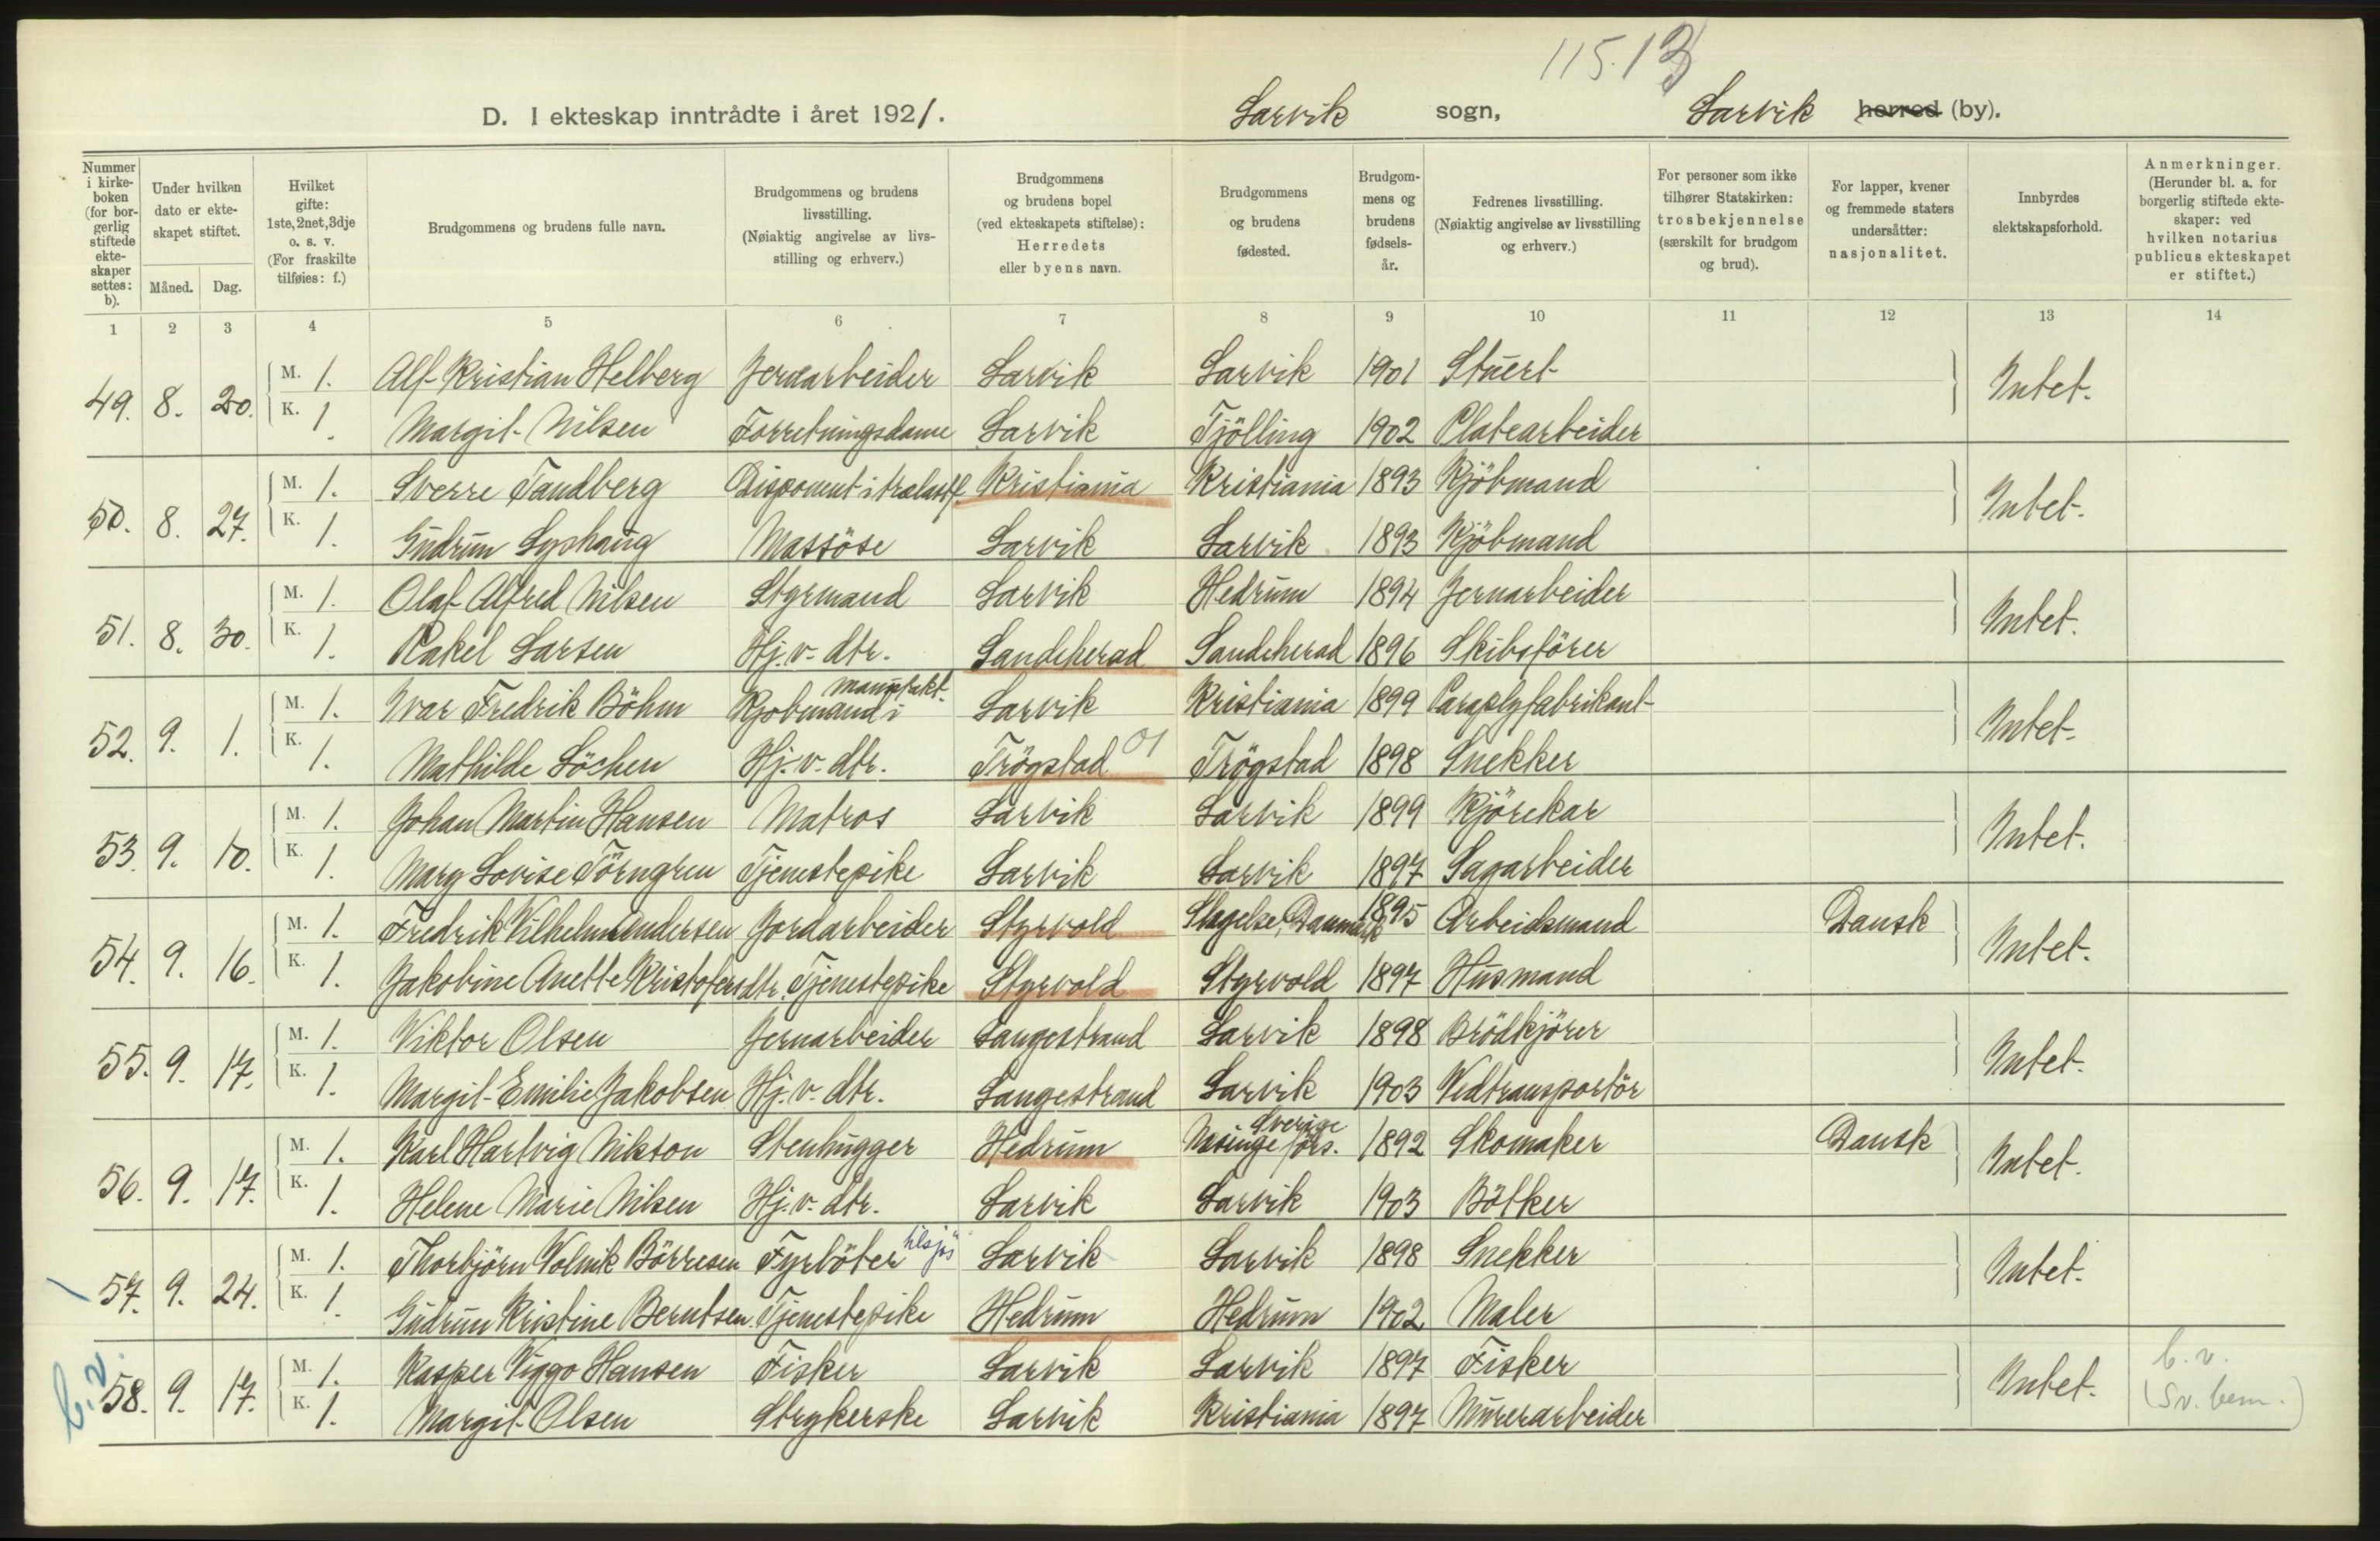 115.13
D. I ekteskap inntrådte i året 1921. Larvik sogn, Larvik herred (by).
Nummer i kirkeboken (for borgerlig stiftede ekteskaper settes: b).
Under hvilken dato er ekteskapet stiftet.
Måned. Dag.
Hvilket gifte: 1ste, 2net, 3dje o. s. v. (For fraskilte tilføies: f.)
Brudgommens og brudens fulle navn.
Brudgommens og brudens livsstilling. (Nøiaktig angivelse av livsstilling og erhverv.)
Brudgommens og brudens bopel (ved ekteskapets stiftelse): Herredets eller byens navn.
Brudgommens og brudens fødested.
Brudgommens og brudens fødselsår.
Fedrenes livsstilling. (Nøiaktig angivelse av livsstilling og erhverv.)
For personer som ikke tilhører Statskirken: trosbekjennelse (særskilt for brudgom og brud).
For lapper, kvener og fremmede staters undersåtter: nasjonalitet.
Innbyrdes slektskapsforhold.
Anmerkninger. (Herunder bl. a. for borgerlig stiftede ekteskaper: ved hvilken notarius publicus ekteskapet er stiftet.)
1 2 3 4 5 6 7 8 9 10 11 12 13 14
49. 8. 20. M. 1. Alf Kristian Helberg Jernarbeider Larvik Larvik 1901 Stuert Intet.
K. 1. Margit Nilsen Forretningsdame Larvik Tjölling 1902 Platearbeider
50. 8. 27. M. 1. Sverre Tandberg Disponent i trelastf. Kristiania Kristiania 1893 Kjöbmand Intet.
K. 1. Gudrun Lyshaug Massöse Larvik Larvik 1893 Kjöbmand
51. 8. 30. M. 1. Olaf Alfred Nilsen Styrmand Larvik Hedrum 1894 Jernarbeider Intet.
K. 1. Rakel Larsen Hj. v. dtr. Sandeherad Sandeherad 1896 Skibsförer
52. 9. 1. M. 1. Ivar Fredrik Böhm Kjobmand i manufakt. Larvik Kristiania 1899 Paraplyfabrikant Intet.
K. 1. Mathilde Löchen Hj. v. dtr. Trögstad 01 Trögstad 1898 Snekker
53. 9. 10. M. 1. Johan Martin Hansen Matros Larvik Larvik 1899 Kjörekar Intet.
K. 1. Mary Lovise Törngren Tjenestepike Larvik Larvik 1897 Sagarbeider
54. 9. 16. M. 1. Fredrik Vilhelm Andersen Jordarbeider Styrvold Slagelse, Danmark 1895 Arbeidsmand Dansk Intet.
K. 1. Jakobine Anette Kristofersdtr. Tjenestepike Styrvold Styrvold 1897 Husmand
55. 9. 17. M. 1. Viktor Olsen Jernarbeider Langestrand Larvik 1898 Brödkjörer Intet.
K. 1. Margit Emilie Jakobsen Hj. v. dtr. Langestrand Larvik 1903 Vedtransportör
56. 9. 17. M. 1. Karl Hartvig Nikson Stenhugger Hedrum förs. Sverige 1892 Skomaker Dansk Intet.
K. 1. Helene Marie Nilsen Hj. v. dtr. Larvik Larvik 1903 Bötker
57. 9. 24. M. 1. Thorbjörn Volmik Börresen Fyrböter tilsjös Larvik Larvik 1898 Snekker Intet.
K. 1. Gudrun Kristine Berntsen Tjenestepike Hedrum Hedrum 1902 Maler
b.v. 58. 9. 17. M. 1. Kasper Viggo Hansen Fisker Larvik Larvik 1897 Fisker Intet. b. v.
K. 1. Margit Olsen Strykerske Larvik Kristiania 1897 Murerarbeider (Sv. bem.)